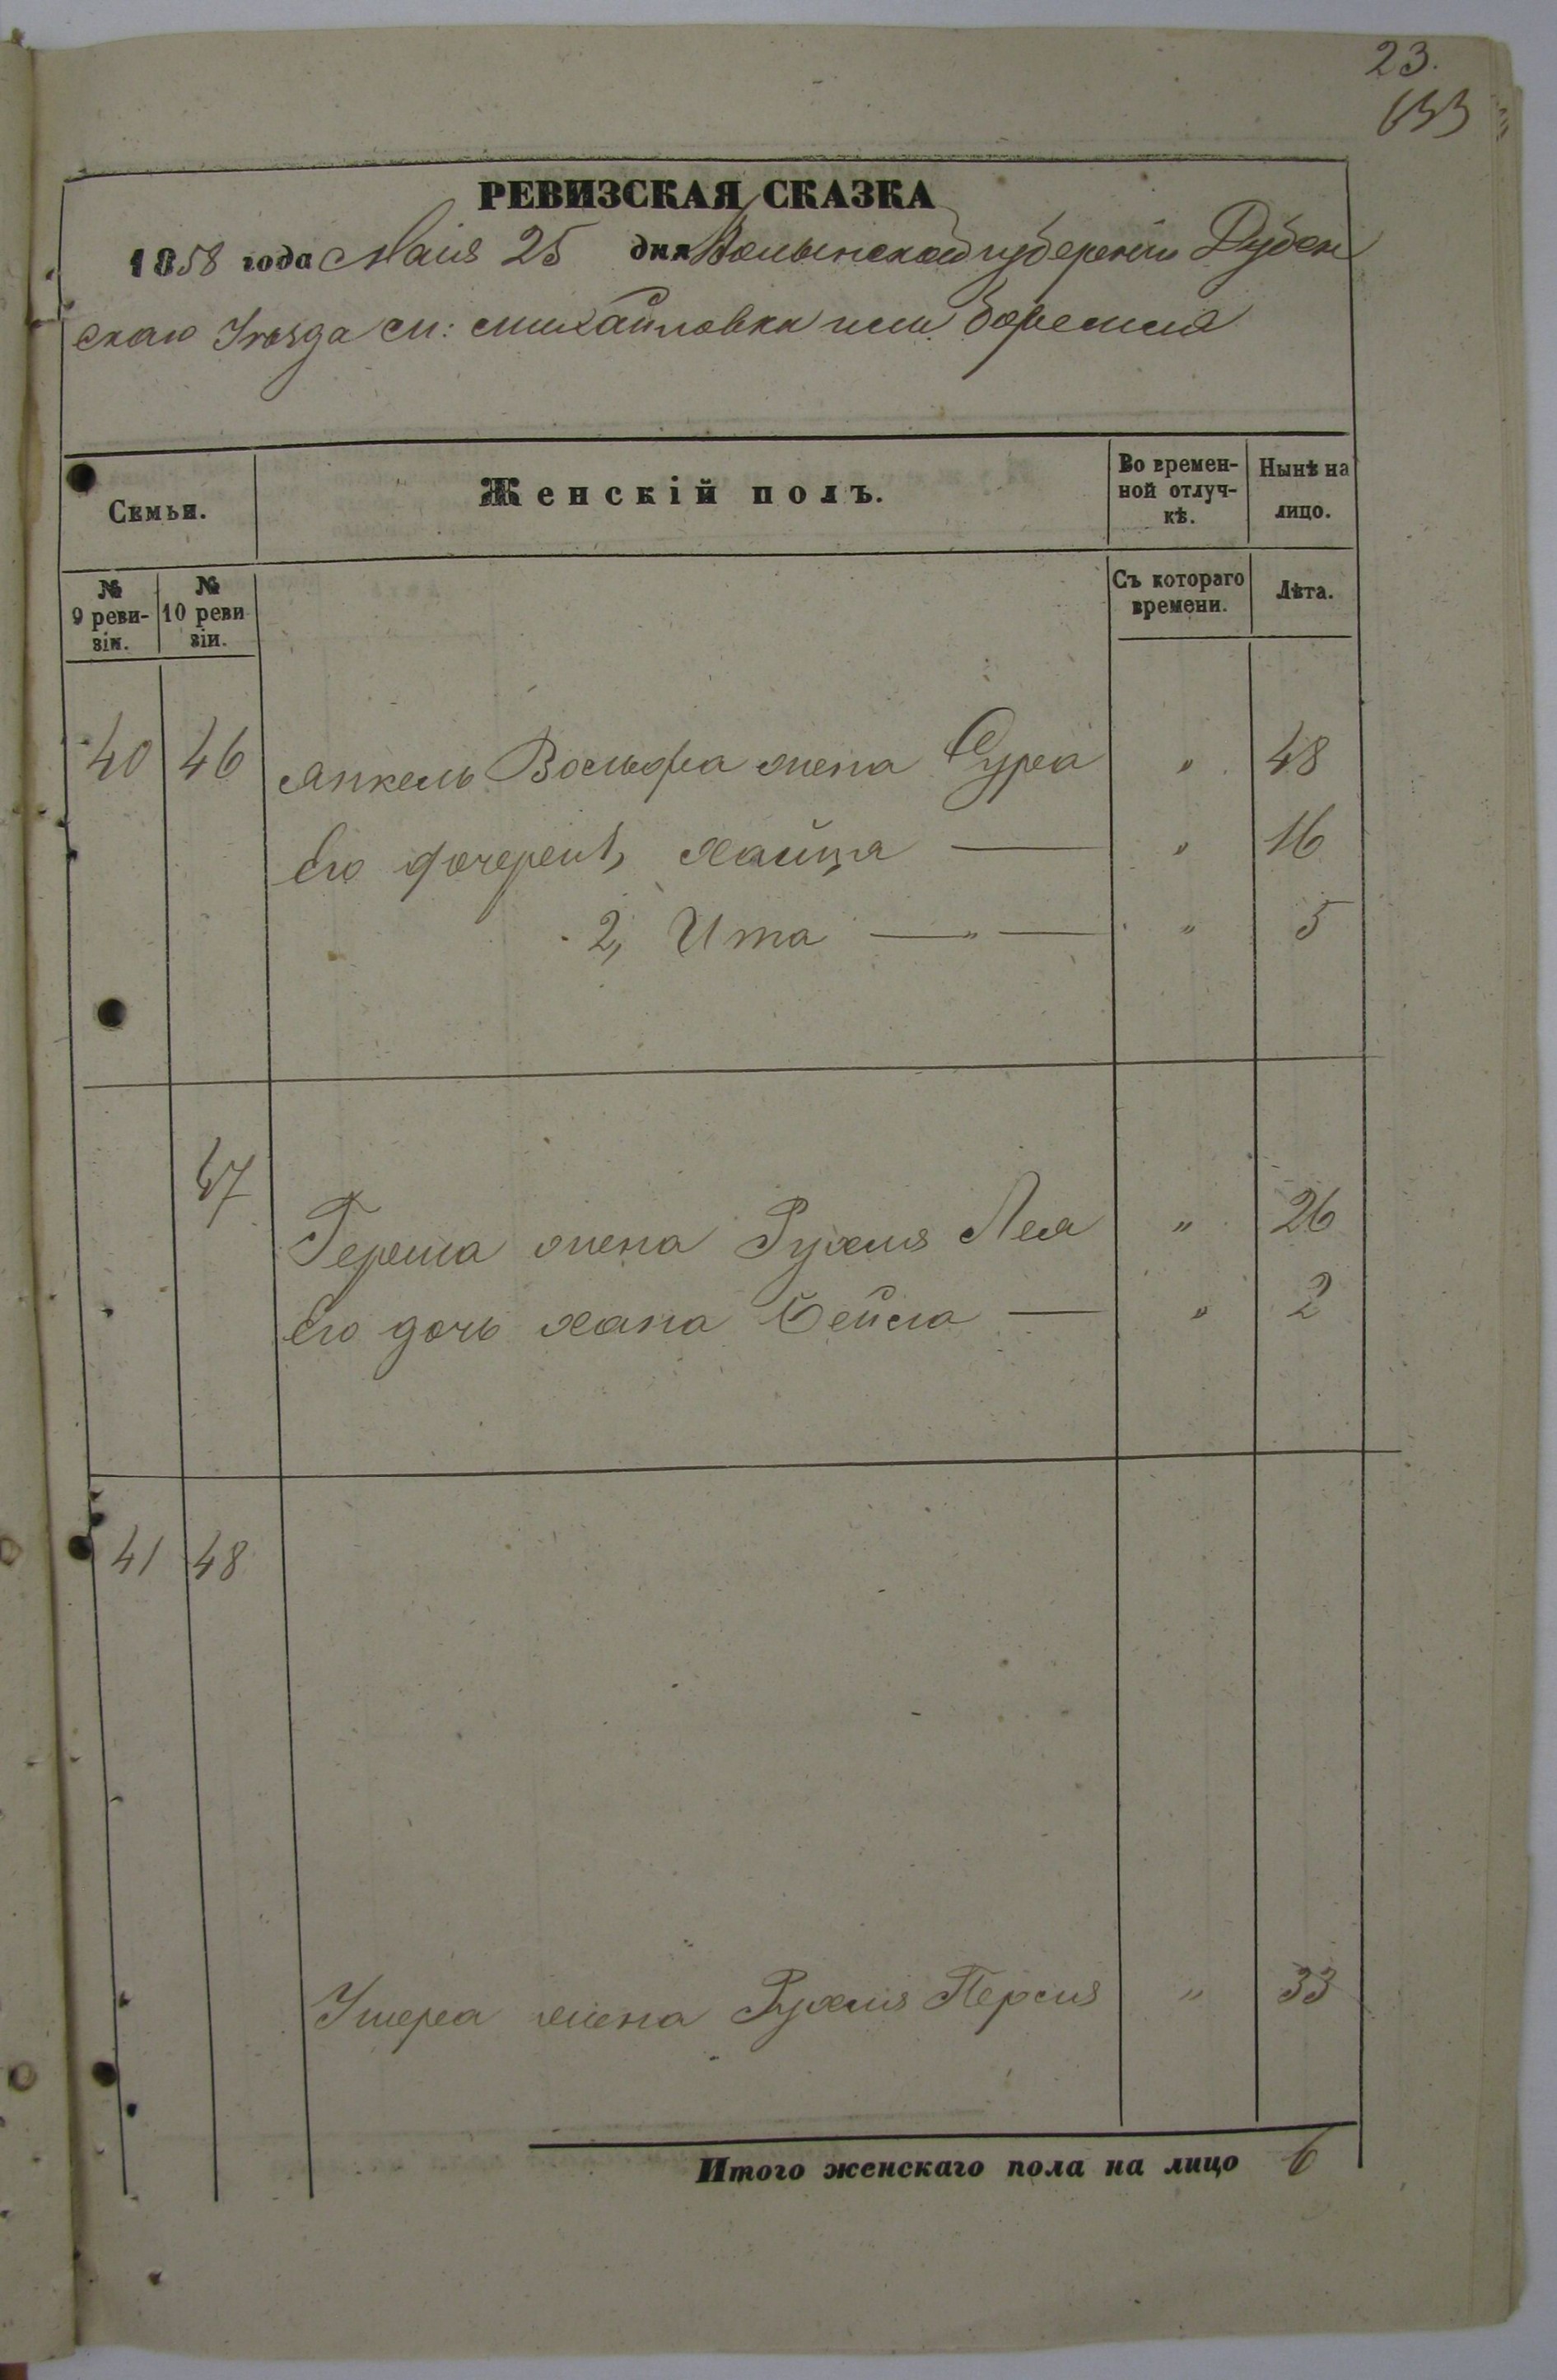 23.
633
РЕВИЗСКАЯ СКАЗКА
1858 года Маія 25 дня Волынской губерніи Дубен
скаго Уѣзда м: Михайловки или Боремля
Семьи.
Женскій полъ.
Во времен-
ной отлуч-
кѣ.
Нынѣ на
лицо.
№
9 реви-
зіи.
№
10 реви
зіи.
Съ котораго
времени.
Лѣта.
40 46 Янкель Вольфа жена Сура " 48
Его дочери 1, Хайца — " 16
2, Ита — " — " 5
47 Герша жена Рухля Лея " 26
Его дочь Хана Бейла — " 2
41 48
Ушера жена Рухля Перля " 33
Итого женскаго пола на лицо 6